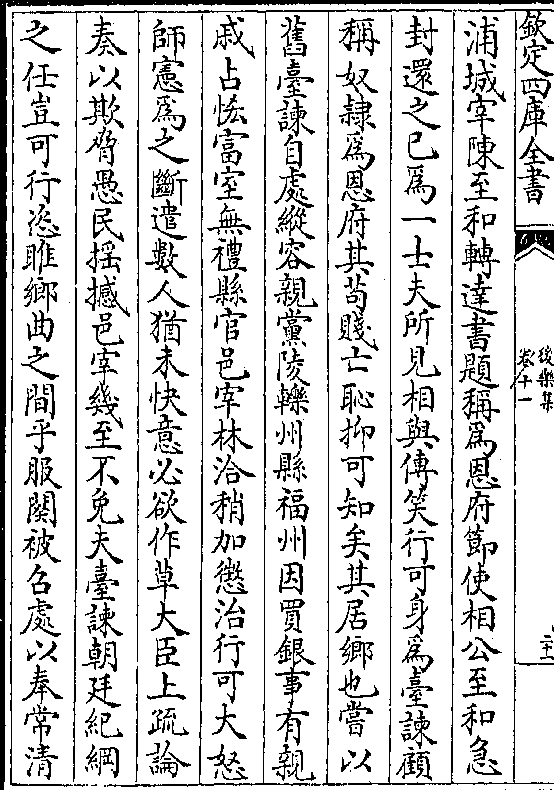 欽定四庫全書
後樂集
卷十一
浦城宰陳至和轉達書題稱為恩府節使相公至和急
封還之已為一士夫所見相與傳笑行可身為臺諫顧
稱奴隸為恩府其苟賤亡恥抑可知矣其居鄉也嘗以
舊臺諫自處縱容親黨陵轢州縣福州因買銀事有親
戚占恡富室無禮縣官邑宰林洽稍加懲治行可大怒
師憲為之斷遣數人猶未快意必欲作草大臣上疏論
奏以欺脅愚民揺撼邑宰幾至不免夫臺諫朝廷紀綱
之任豈可行恣睢鄉曲之間乎服闋被召處以奉常清